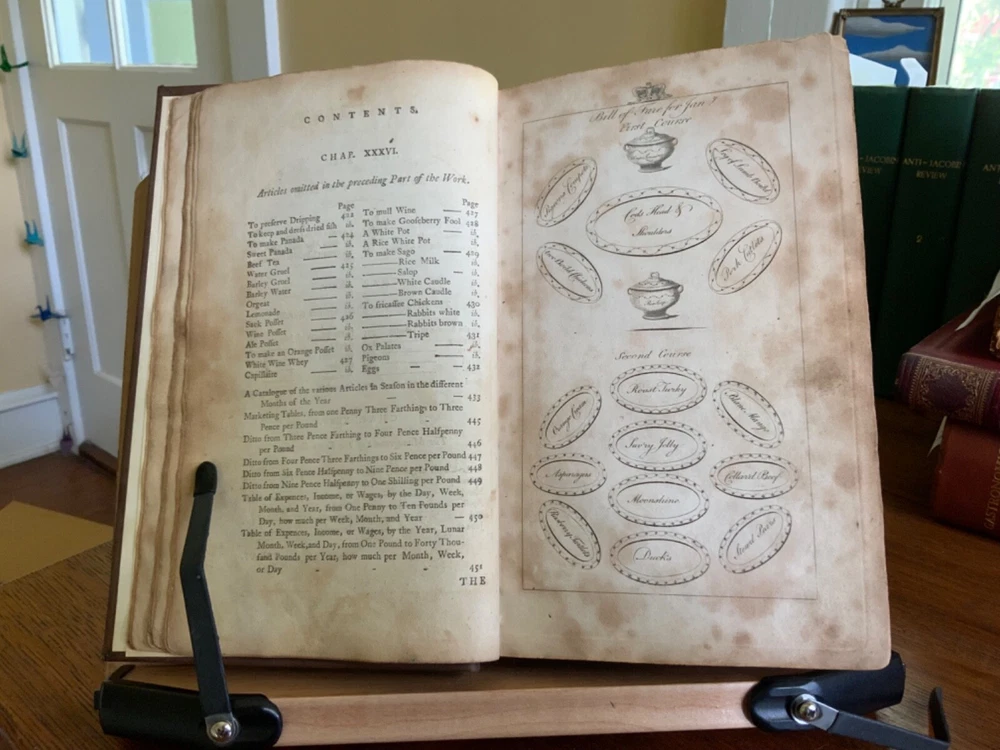 CONTENTS,
CHAP. XXXVI.
Articles omitted in the preceding Part of the Work.
Page
To preserve Dripping 422
To keep and dress dried fish ib.
To make Panada — 424
Sweet Panada ib.
Beef Tea —— 425
Water Gruel —— ib.
Barley Gruel —— ib.
Barley Water —— ib.
Orgeat —— ib.
Lemonade —— ib.
Sack Posset —— 426
Wine Posset —— ib.
Ale Posset —— ib.
To make an Orange Posset ib.
White Wine Whey 427
Capillaire —— ib.
Page
To mull Wine —— 427
To make Gooseberry Fool 428
A White Pot —— ib.
A Rice White Pot ib.
To make Sago —— 429
——Rice Milk ib.
——Salop — ib.
——White Caudle ib.
——Brown Caudle ib.
To fricassee Chickens 430
——Rabbits white ib.
——Rabbits brown ib.
——Tripe 431
Ox Palates —— ib.
Pigeons —— ib.
Eggs — — 432
A Catalogue of the various Articles in Season in the different
Months of the Year — — 433
Marketing Tables, from one Penny Three Farthings to Three
Pence per Pound - - - 445
Ditto from Three Pence Farthing to Four Pence Halfpenny
per Pound - - - 446
Ditto from Four Pence Three Farthings to Six Pence per Pound 447
Ditto from Six Pence Halfpenny to Nine Pence per Pound 448
Ditto from Nine Pence Halfpenny to One Shilling per Pound 449
Table of Expences, Income, or Wages, by the Day, Week,
Month, and Year, from One Penny to Ten Pounds per
Day, how much per Week, Month, and Year — 450
Table of Expences, Income, or Wages, by the Year, Lunar
Month, Week, and Day, from One Pound to Forty Thou-
sand Pounds per Year, how much per Month, Week,
or Day - - - 451
THE
Bill of Fare for Jany
First Course
Cods Head &
Shoulders
Pork Cutlets
Second Course
Roast Turkey
Orange
Blanc Mange
Savory Jelly
Asparagus
Collared Beef
Moonshine
Stewed Pears
Ducks
ANTI-JACOBIN
REVIEW
2
ANTI-JACOBIN
REVIEW